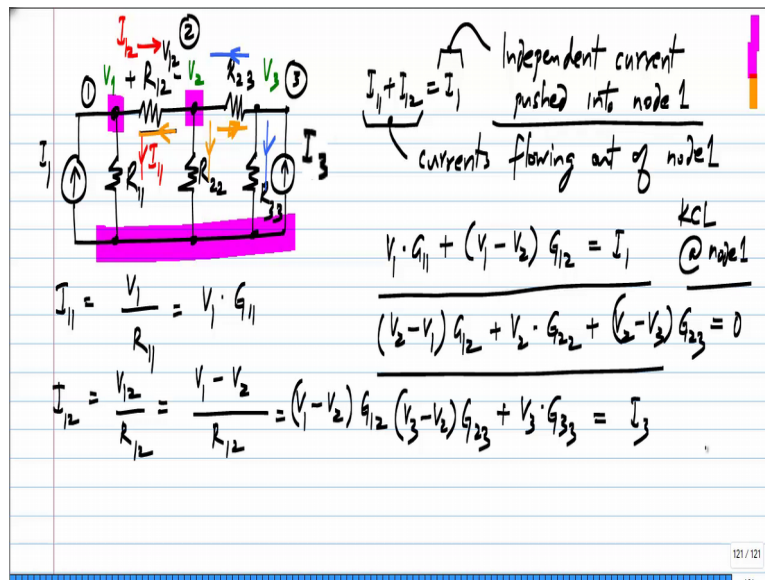 I₁₂ → V₁₂ ②
① V₁ + R₁₂ - V₂ R₂₃ V₃ ③
I₁ R₁₁ I₁₁ R₂₂ R₃₃ I₃
I₁₁ + I₁₂ = I₁
Independent current
pushed into node 1
currents flowing out of node 1
V₁ · G₁₁ + (V₁ - V₂) G₁₂ = I₁
KCL
@ node 1
I₁₁ = V₁ / R₁₁ = V₁ · G₁₁
(V₂ - V₁) G₁₂ + V₂ · G₂₂ + (V₂ - V₃) G₂₃ = 0
I₁₂ = V₁₂ / R₁₂ = V₁ - V₂ / R₁₂ = (V₁ - V₂) G₁₂
(V₃ - V₂) G₂₃ + V₃ · G₃₃ = I₃
121 / 121